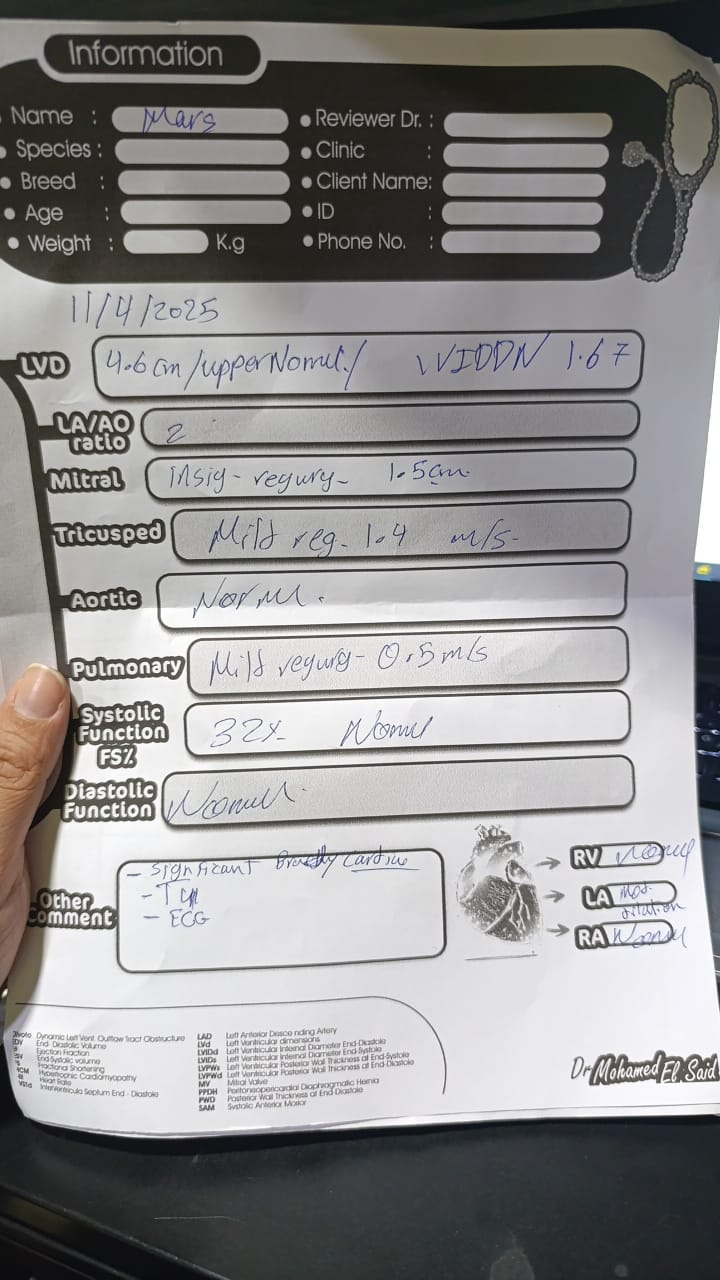 Information
Name : Mars
Species :
Breed :
Age :
Weight : K.g
Reviewer Dr. :
Clinic :
Client Name:
ID :
Phone No. :
11/4/2025
LVD 4.6 cm/upper Normal/ LVIDDN 1.67
LA/AO ratio 2
Mitral insig- regurg- 1.5cm
Tricusped Mild reg. 1.4 m/s-
Aortic Normal.
Pulmonary Mild regurg- 0.5m/s
Systolic Function FS% 32% Normal
Diastolic Function Normal.
Other Comment
- Significant
-
- ECG
RV Normal
LA Mod. dilation
RA Normal
Dynamic Left Vent. Outflow Tract Obstructure
End- Diastolic Volume
Ejection Fraction
End-Systolic volume
Fractional Shortening
Hypertrophic Cardiomyopathy
Heart Rate
Interventricula Septum End - Diastole
LAD Left Anterior Desce nding Artery
LVd Left Ventricular dimensions
LVIDd Left Ventricular Internal Diameter End-Diastole
LVIDs Left Ventricular Internal Diameter End-Systole
LVPWs Left Ventricular Posterior Wall Thickness at End-Systole
LVPWd Left Ventricular Posterior Wall Thickness at End-Diastole
MV Mitral Valve
PPDH Peritoneopericardial Diaphragmatic Hernia
PWD Posterior Wall Thickness at End-Diastole
SAM Systolic Anterior Motior
Dr Mohamed El Said